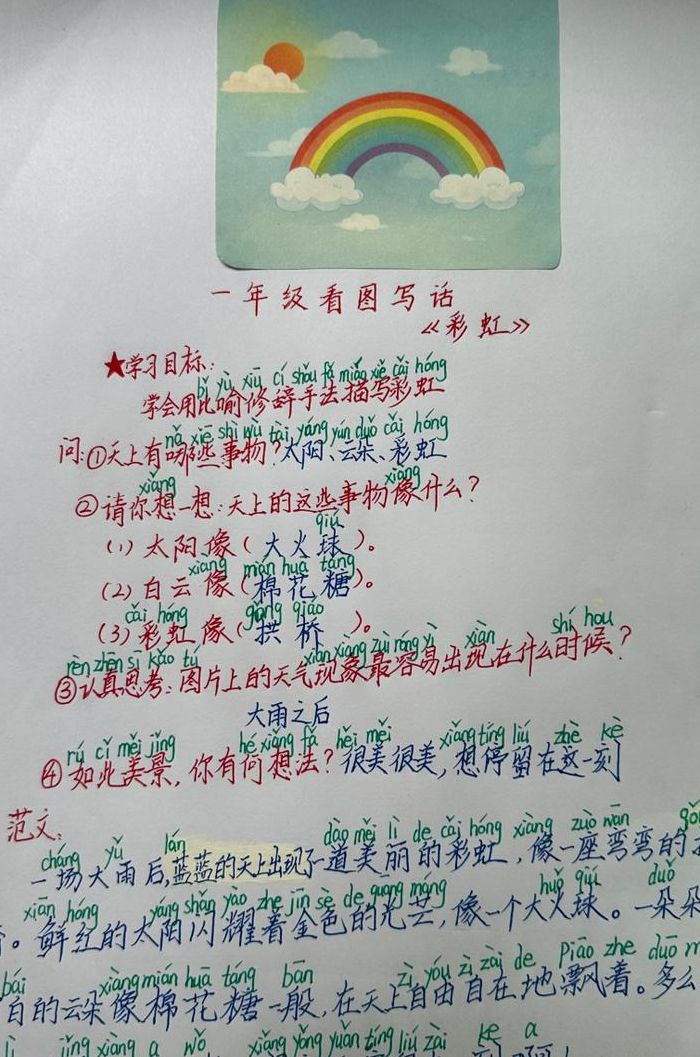 一年级看图写话
《彩虹》
★学习目标:
bǐ yù xiū cí shǒu fǎ miáo xiě cǎi hóng
学会用比喻修辞手法描写彩虹
nǎ xiē shì wù tài yáng yún duǒ cǎi hóng
问:①天上有哪些事物?太阳、云朵、彩虹
xiǎng xiàng
②请你想一想:天上的这些事物像什么?
qiú
(1)太阳像(大火球)。
xiàng mián huā táng
(2)白云像(棉花糖)。
cǎi hóng gǒng qiáo
(3)彩虹像(拱桥)。
rèn zhēn sī kǎo tú xiàn xiàng zuì róng yì xiàn shí hou
③认真思考:图片上的天气现象最容易出现在什么时候?
大雨之后
rú cǐ měi jǐng hé xiǎng fǎ hěi měi xiǎng tíng liú zhè kè
④如此美景,你有何想法?很美很美,想停留在这一刻
范文:
cháng yǔ lán dào měi lì de cǎi hóng xiàng zuò wān
一场大雨后,蓝蓝的天上出现了一道美丽的彩虹,像一座弯弯的
xiān hóng yáng shǎn yào zhe jīn sè de guāng máng huǒ qiú duǒ
。鲜红的太阳闪耀着金色的光芒,像一个大火球。一朵朵
bái xiàng mián huā táng bān zì yóu zì zài de piāo zhe duō
白的云朵像棉花糖一般,在天上自由自在地飘着。多么
jǐng xiàng a wǒ xiǎng yǒng yuǎn tíng liú zài kè a